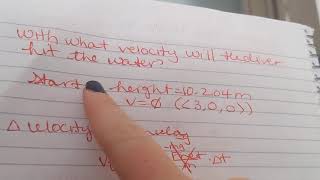 With what velocity will the diver
hit the water?
Start height=10.204m
v=0 (<3,0,0>)
Δ velocity
· Δt